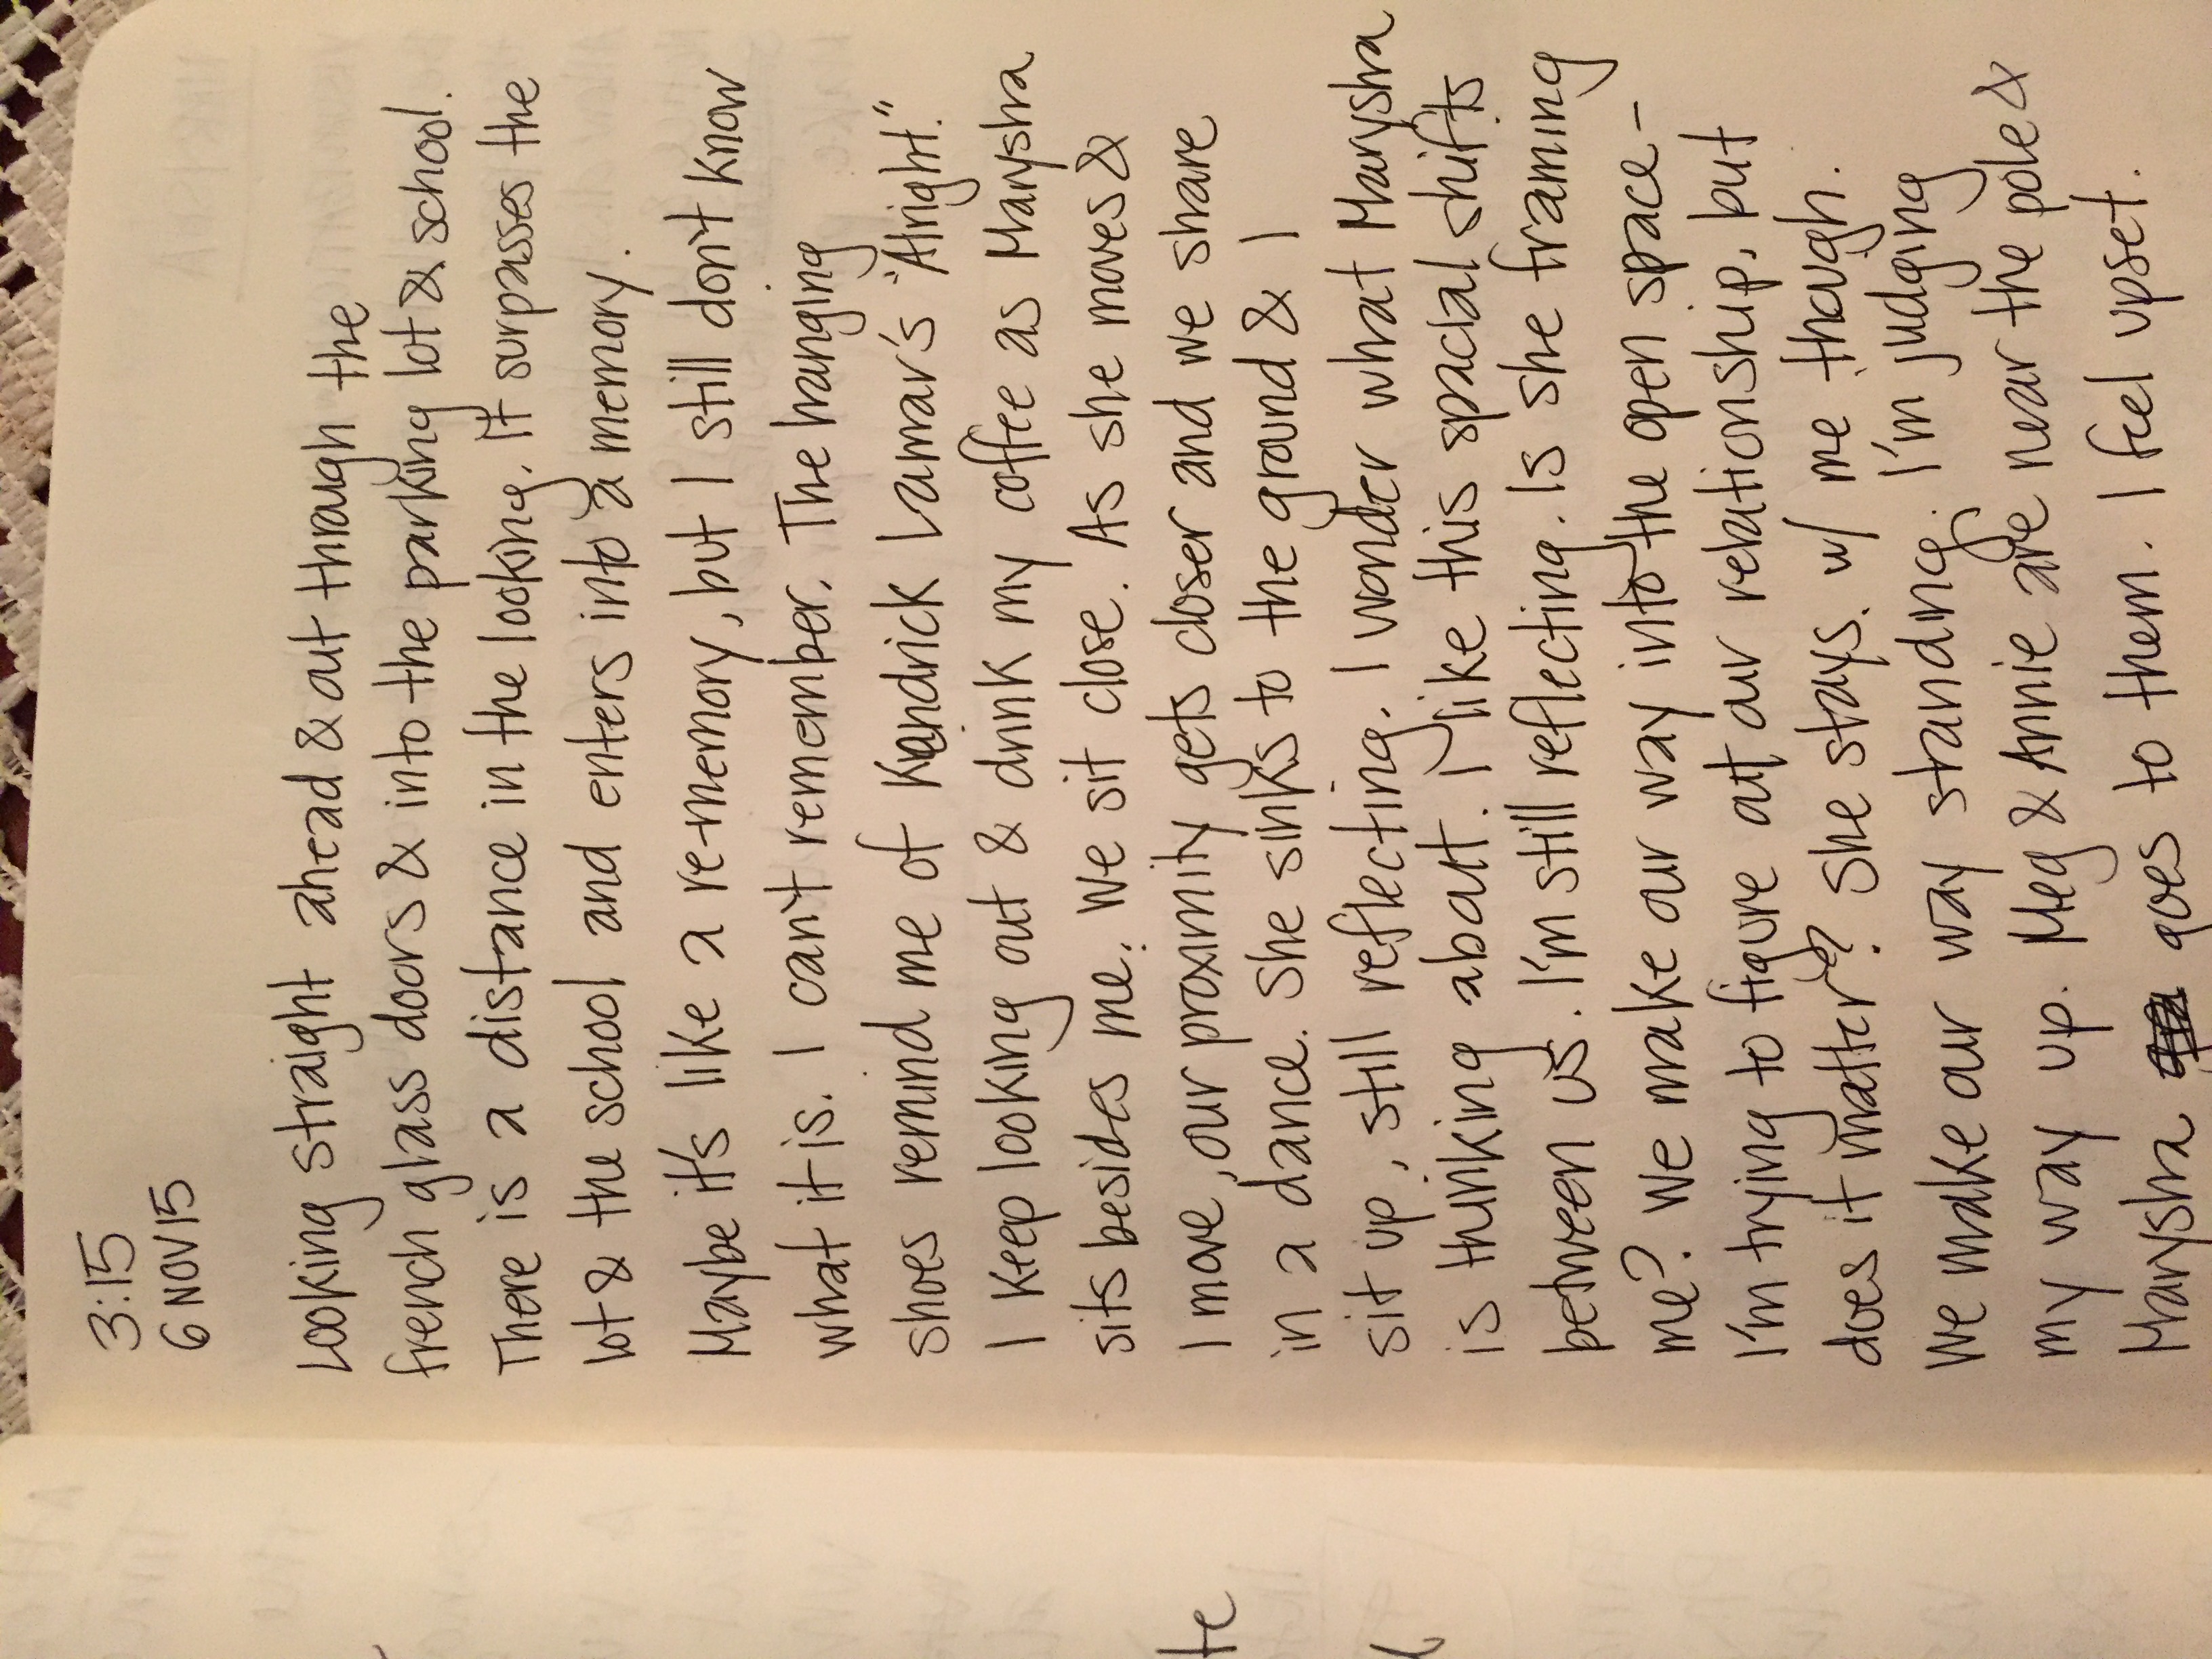 3:15
6 NOV 15
Looking straight ahead & out through the
french glass doors & into the parking lot & school.
There is a distance in the looking. It surpasses the
lot & the school and enters into a memory.
Maybe it's like a re-memory, but I still don't know
what it is. I can't remember. The hanging
shoes remind me of Kendrick Lamar's "Alright."
I keep looking out & drink my coffee as Marysha
sits besides me. We sit close. As she moves &
I move, our proximity gets closer and we share
in a dance. She sinks to the ground & I
sit up, still reflecting. I wonder what Marysha
is thinking about. I like this spacial shifts
between us. I'm still reflecting. Is she framing
me? We make our way into the open space-
I'm trying to figure out our relationship, but
does it matter? She stays. w/ me though.
We make our way standing. I'm judging
my way up. Meg & Annie are near the pole &
Marysha goes to them. I feel upset.
te